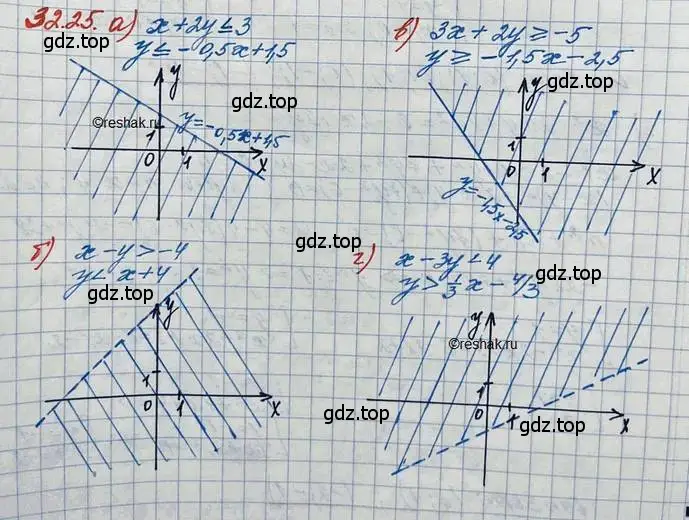 32.25. а) x+2y≤3
y≤-0,5x+1,5
y
gdz.top
©reshak.ru
y=-0,5x+1,5
1
0
1
x
gdz.top
в) 3x+2y≥-5
y≥-1,5x-2,5
y
gdz.top
1
0
1
x
y=-1,5x-2,5
gdz.top
б) x-y>-4
y<x+4
gdz.top
y
1
0
1
x
gdz.top
г) x-3y<4
y>1/3x-4/3
gdz.top
y
©reshak.ru
1
0
1
x
gdz.top